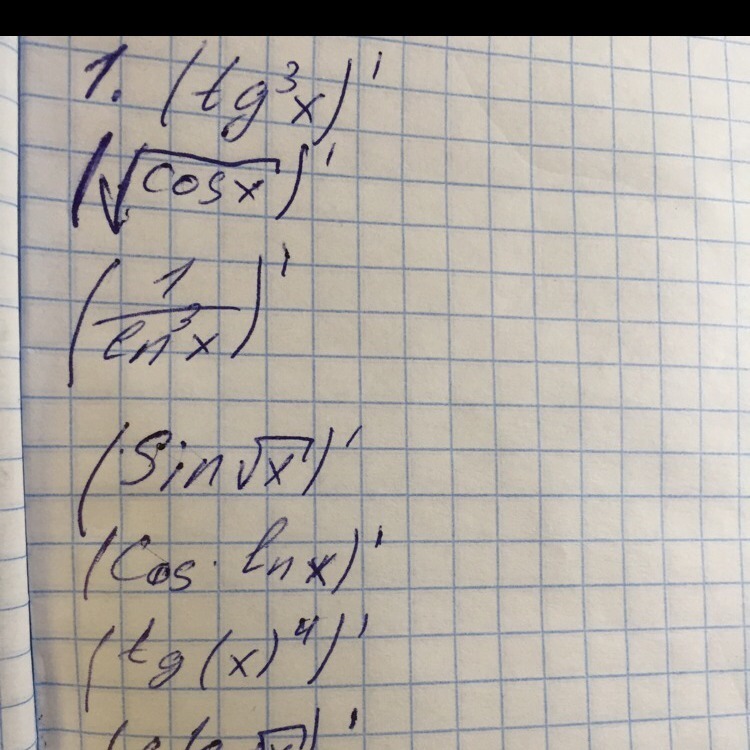 1. (tg³x)'
(√cosx)'
(1/ln³x)'
(Sin√x)'
(Cos· lnx)'
(tg(x)⁴)'